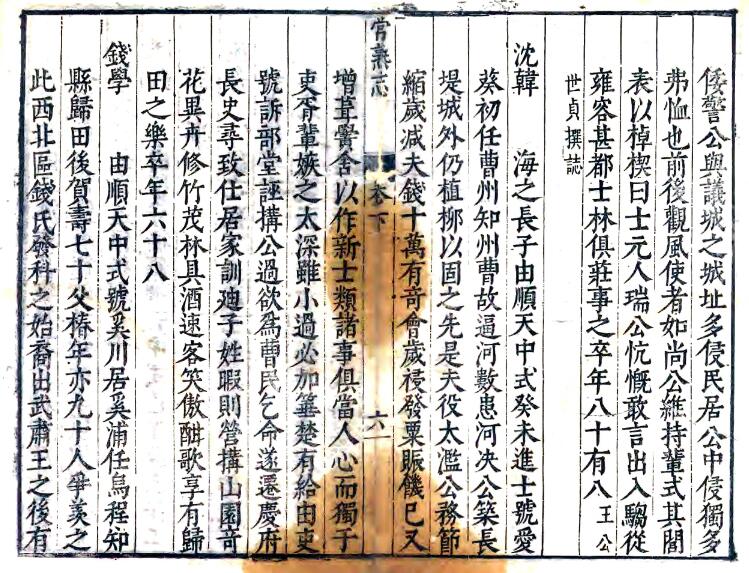 倭警公與議城之城址多侵民居公中侵獨多
弗恤也前後觀風使者如尚公維持輩式其閭
表以棹楔曰士元人瑞公忼慨敢言出入騶從
雍容甚都士林俱莊事之卒年八十有八王公
世貞撰誌
沈韓　海之長子由順天中式癸未進士號愛
葵初任曹州知州曹故逼河數患河决公築長
堤城外仍植柳以固之先是夫役太濫公務節
縮歲减夫錢十萬有竒會歲祲發粟賑饑已又
常熟志　卷下　六
增葺黌舍以作新士類諸事俱當人心而獨于
吏胥輩嫉之太深雖小過必加箠楚有給由吏
號訴部堂誣搆公過欲爲曹民乞命遂遷慶府
長史尋致仕居家訓廸子姓暇則營搆山園竒
花異卉修竹茂林具酒速客笑傲酣歌享有歸
田之樂卒年六十八
錢學　由順天中式號奚川居奚浦任烏程知
縣歸田後賀壽七十父椿年亦九十人爭羡之
此西北區錢氏發科之始裔出武肅王之後有